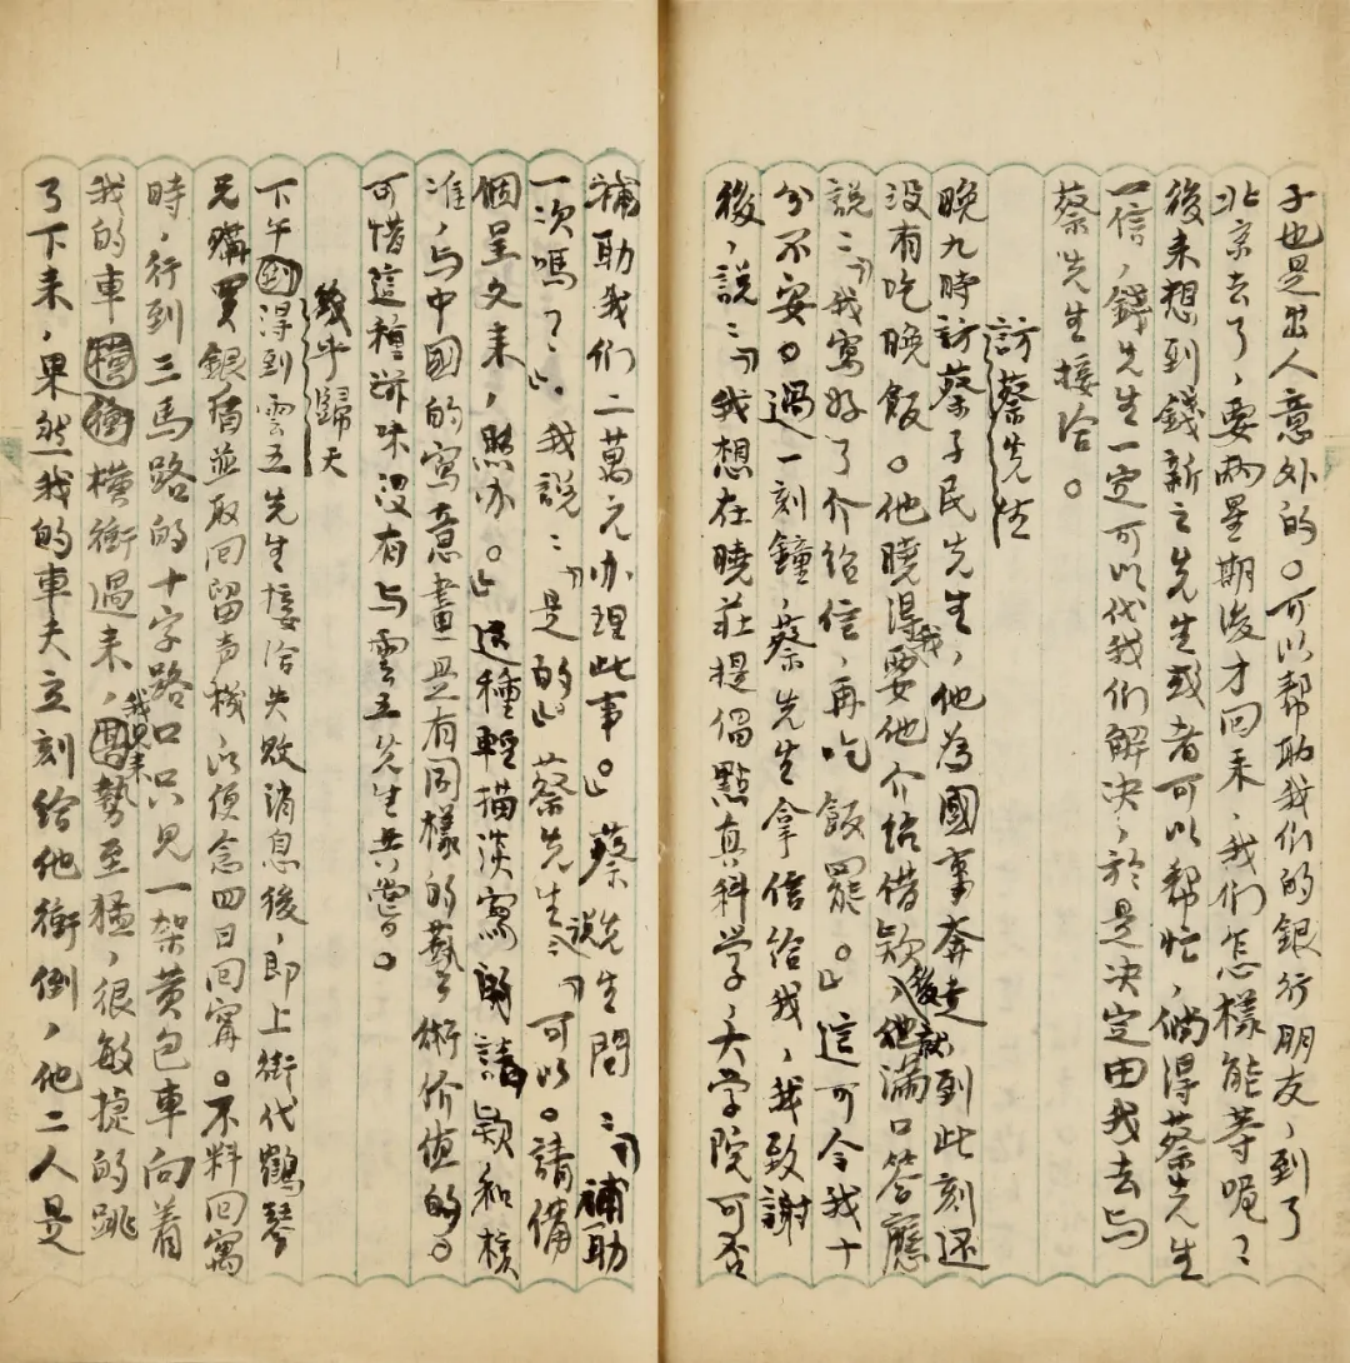 子也是出人意外的。可以帮助我们的銀行朋友，到了
北京去了，要兩星期後才回来，我们怎樣能等呢？
後来想到錢新之先生或者可以帮忙，倘得蔡先生
一信，錢先生一定可以代我们解决，於是决定由我去与
蔡先生接洽。
訪蔡先生
晚九時訪蔡孑民先生，他為國事奔走，到此刻还
没有吃晚飯。他曉得我要他介绍借欵後，他就滿口答應
説：「我寫好了介绍信，再吃飯罷。」這可令我十
分不安。過一刻鐘，蔡先生拿信给我，我致謝
後，説：「我想在曉莊提倡點真科学，大学院可否
補助我们二萬元办理此事。」蔡先生問：「補助
一次嗎？」我説：「是的。」蔡先生説：「可以。請備
個呈文来，照办。」這種輕描淡寫的請欵和核
准，与中國的寫意畫是有同樣的藝術价值的。
可惜這種滋味没有与雲五先生共嘗。
幾乎歸天
下午得到雲五先生接洽失敗消息後，即上街代鶴琴
兄購買銀盾並取回留声機，以便念四日回寗。不料回寓
時，行到三馬路的十字路口只見一架黄包車向着
我的車橫衝過来，我見来勢至猛，很敏捷的跳
了下来，果然我的車夫立刻给他衝倒，他二人是